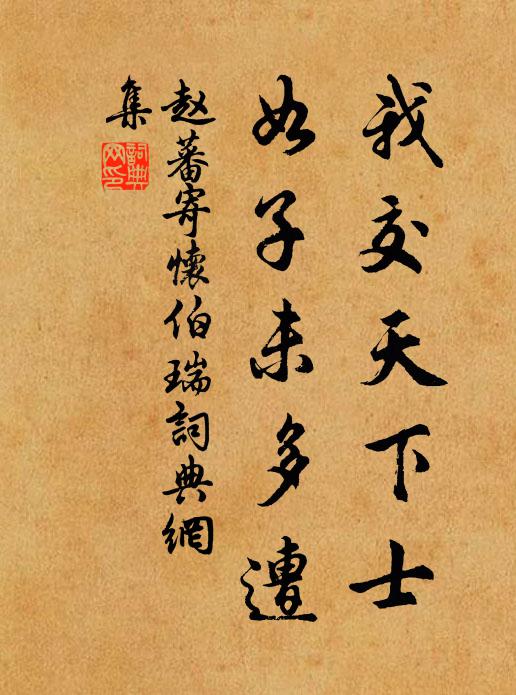 我交天下士
如子未多遭
赵蕃寄懷伯瑞詞典網
集
詞典網印